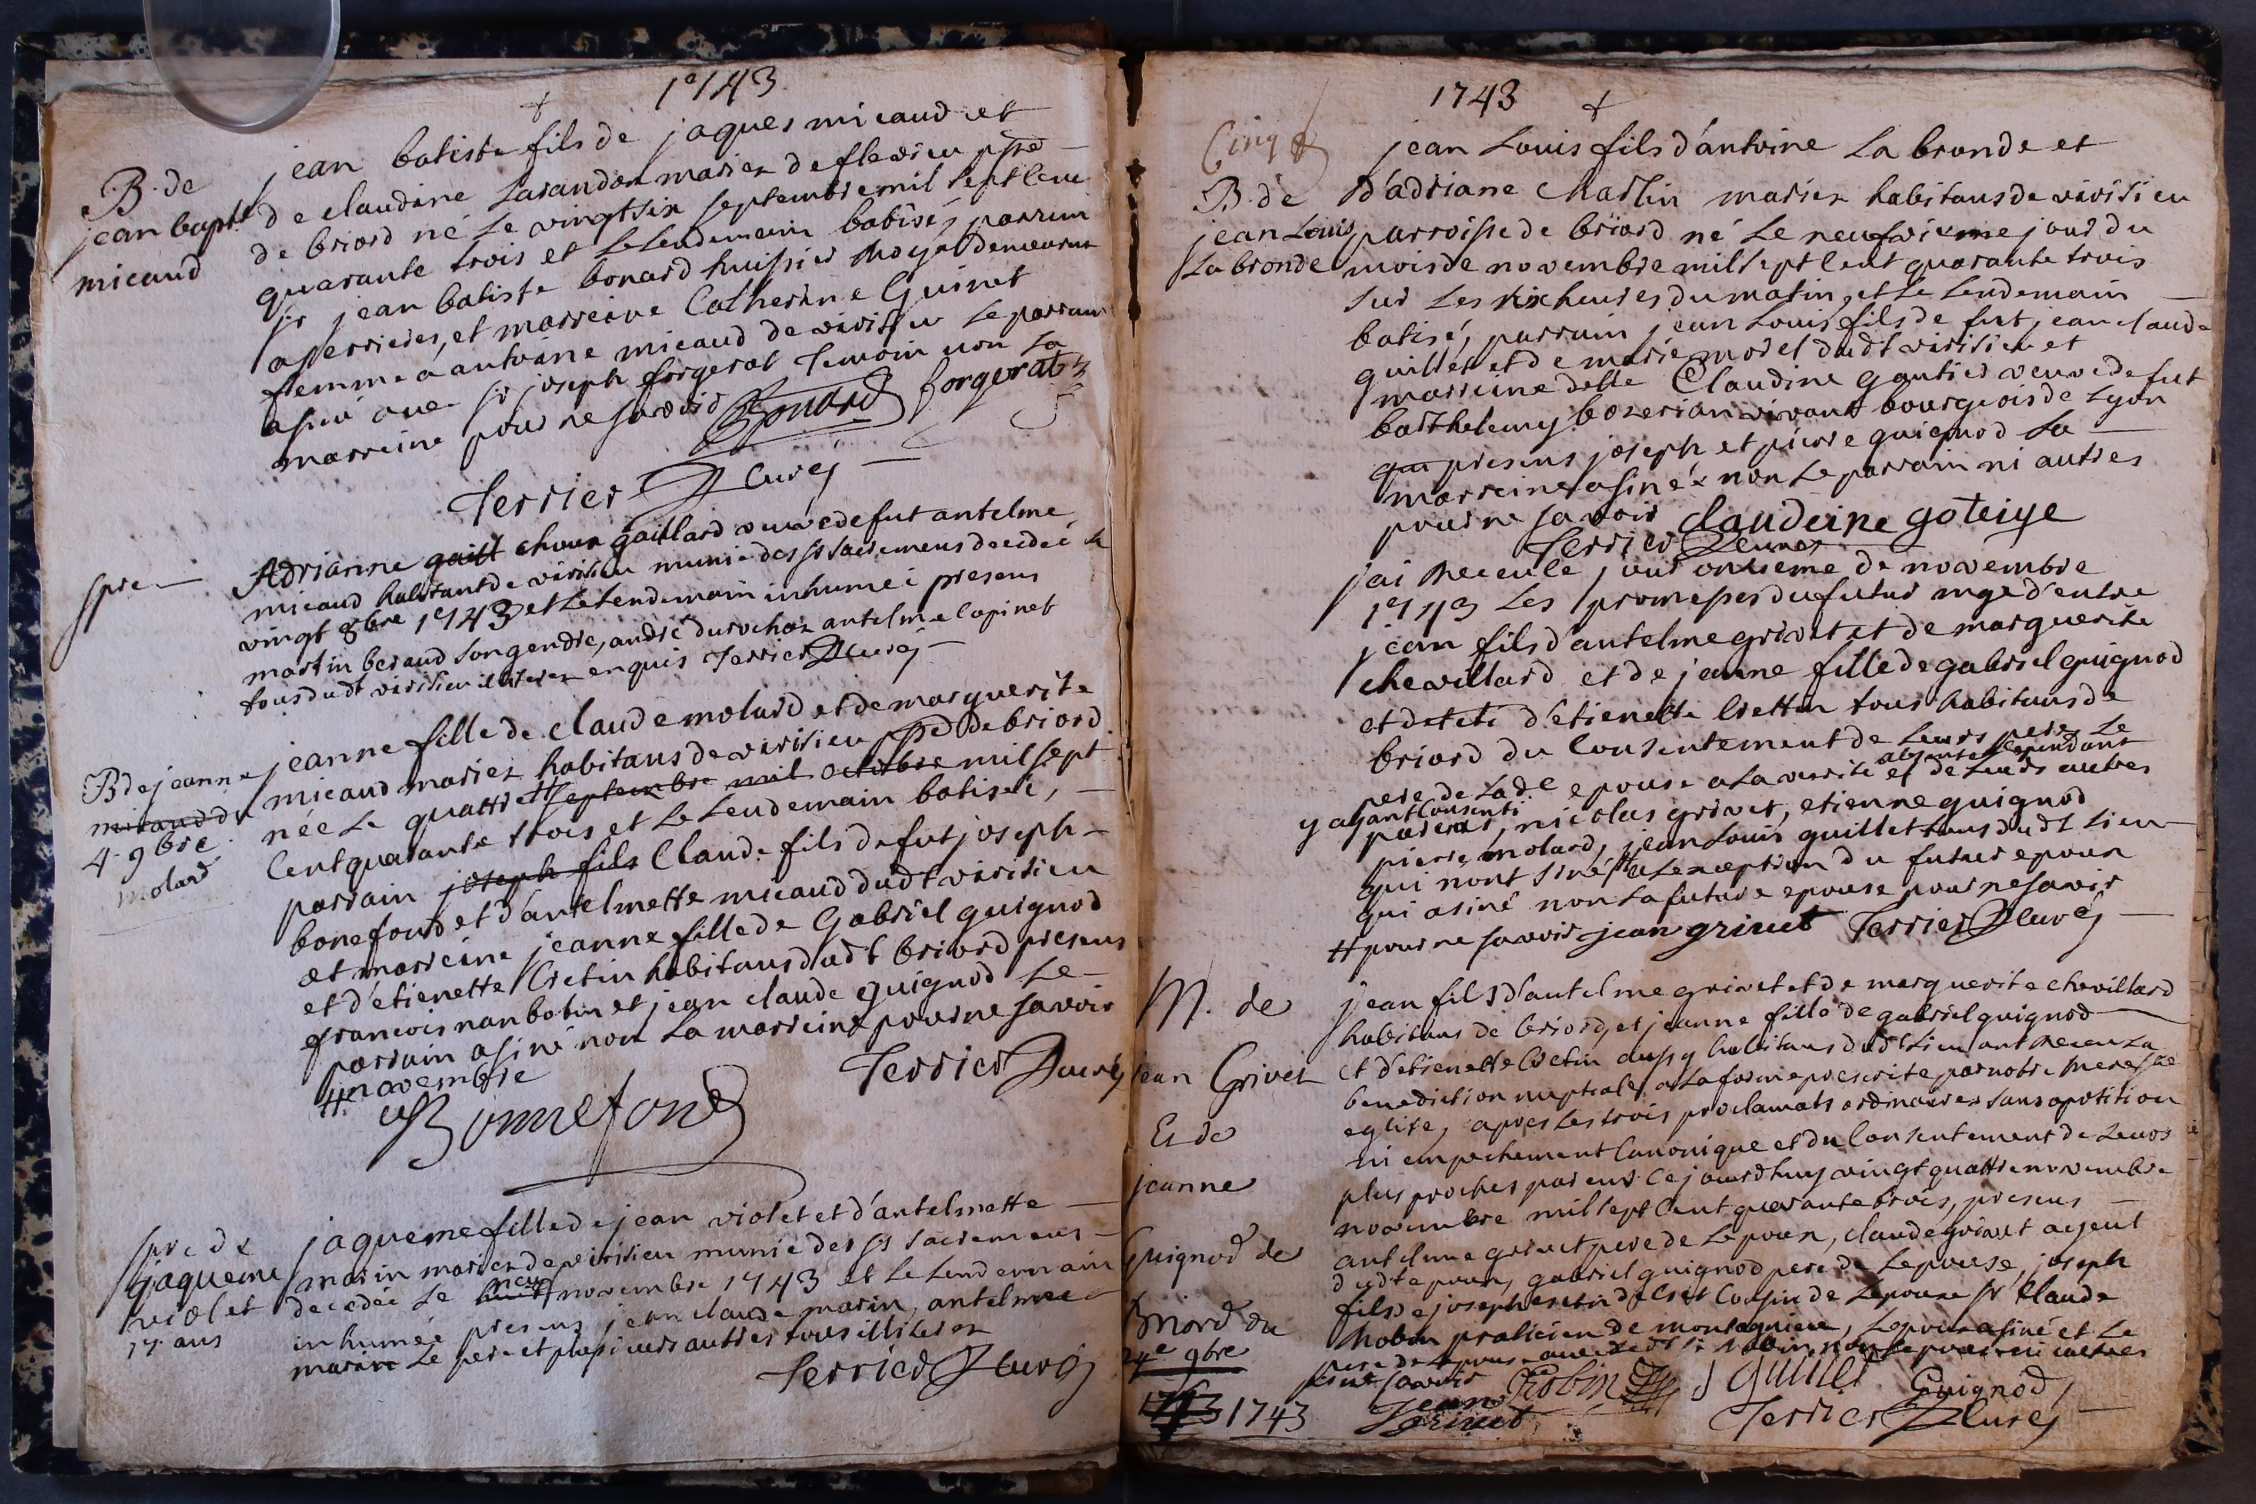 1743
B. de
jean bapt
micaud
jean batiste fils de jaques micaud et
de claudine Larandon mariez de flevieu psse
de briord né le vingt six septembre mil sept cent
quarante trois et le lendemain batisé, parrain
sr jean batiste bonard huissier royal demeurant
a serrieres, et marreine Catherine Guinet
femme a antoine micaud de virisieu le parrain
a siné avec sr joseph forgerat temoin non la
marreine pour ne savoir Bonard forgerat
Terrier Curé
spre
Adrianne choux gaillard veuve de fut antelme
micaud habitant de virisieu munie des sts sacremens decedée le
vingt 8bre 1743 et le lendemain inhumée presens
martin beraud son gendre, andré durochaz antelme Copinet
tous dudt virisieu illiterez enquis Terrier Curé
B de jeanne
micaud du
4 9bre
molard
jeanne fille de claude molard et de marguerite
micaud mariez habitans de virisieu psse de briord
née le quattre septembre mil octobre mil sept
Cent quarante trois et le lendemain batisée,
parrain joseph fils Claude fils de fut joseph
bonefond et d'antelmette micaud dudt virisieu
et marreine jeanne fille de Gabriel guignod
et d'etienette Cretin habitans dudt briord presens
francois nanbotin et jean claude guignod le
parrain a siné non la marreine pour ne savoir
# novembre
Terrier Curé
Bonnefond
spre de
jaqueme
violet
17 ans
jaqueme fille de jean violet et d'antelmette
marin mariez de virisieu munie des sts sacremens
decedée le huit neuf novembre 1743 et le lendemain
inhumée presens jean claude marin, antelme
marin le pere et plusieurs autres tous illiterez
Terrier Curé
1743
Cinq
B. de
jean Louis
La bronde
jean Louis fils d'antoine La bronde et
d'adriane Martin mariez habitans de virisieu
parroisse de briord né le neufvieme jour du
mois de novembre mil sept cent quarante trois
sur les six heures du matin, et le lendemain
batisé, parrain jean Louis fils de fut jean claude
guillet et de marie morel dudt virisieu et
marreine delle Claudine gautier veuve de fut
barthelemy bozerian vivant bourgeois de Lyon
presens joseph et pierre guignod La
marreine a siné non le parrain ni autres
pour ne savoir claudeine goteiye
Terrier Curé
j'ai receu le jour onzieme de novembre
1743 les promesses du futur mge d'entre
jean fils d'antelme grivet et de marguerite
chevillard et de jeanne fille de gabriel guignod
et d'etienette Crettin tous habitans de
briord du Consentement de leurs pere le
pere de lade epouse a la verité absent cependant
y ayant Consenti et de leurs autres
parens, nicolas grivet, etienne guignod
pierre molard, jean Louis guillet tous dudt lieu
qui nont siné # a l'exception du futur epoux
qui a siné non la future epouse pour ne savoir
# pour ne savoir jean grivet Terrier Curé
M. de
jean Grivet
Et de
jeanne
Guignod de
Briord du
24e 9bre
1743 1743
jean fils d'antelme grivet et de marguerite chevillard
habitans de briord, et jeanne fille de gabriel guignod
et d'etienette Cretin aussy habitans dudt lieu ont receu la
benediction nuptiale a la forme prescrite par notre mere ste
eglise, apres les trois proclamats ordinaires sans opotition
ni empechement Canonique et du Consentement de leurs
plus proches parens. Ce jourd'huy vingt quattre novembre
novembre mil sept Cent quarante trois, presens
antelme grivet pere de l'epoux, claude grivet
dudt epoux, gabriel guignod pere de l'epouse, joseph
fils de joseph cretin Cousin de l'epouse sr Claude
Robin praticien de montagnieu, l'epoux a siné et le
pere de l'epouse avec ledt sr robin non l'epouse ni autres
pour ne savoir
jean grivet Robin J guillet Guignod
Terrier Curé